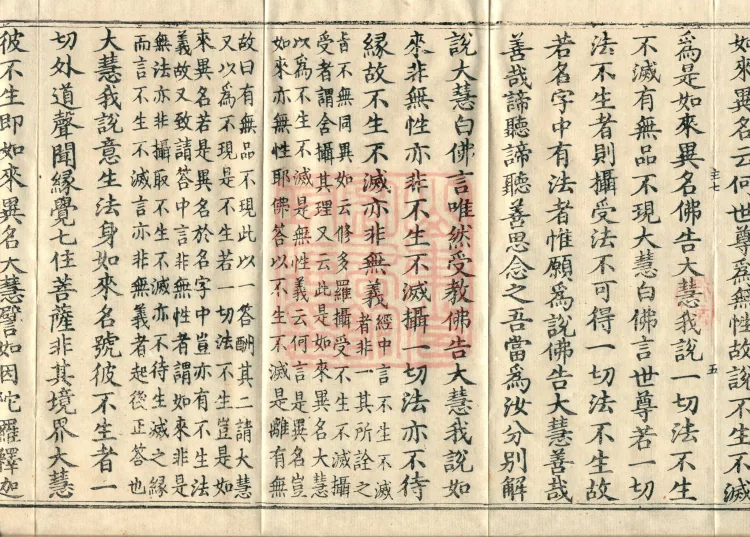 如來異名云何世尊爲無性故說不生不滅
主七
五
爲是如來異名佛告大慧我說一切法不生
不滅有無品不現大慧白佛言世尊若一切
法不生者則攝受法不可得一切法不生故
若名字中有法者惟願爲說佛告大慧善哉
善哉諦聽諦聽善思念之吾當爲汝分別解
說大慧白佛言唯然受教佛告大慧我說如
來非無性亦非不生不滅攝一切法亦不待
緣故不生不滅亦非無義
經中言不生不滅
者非一其所詮之
旨不無同異如云修多羅攝受不生不滅攝
受者謂舍攝其理又云此是如來異名大慧
以爲不生不滅是無性義云何言是異名豈
如來亦無性耶佛答以不生不滅是離有無
故曰有無品不現此以一答酬其二請大慧
又以爲不現是不生若一切法不生豈是如
來異名若是異名於名字中豈亦有不生法
義故又致請答中言非無性者謂如來非是
無法亦非攝取不生不滅亦不待生滅之緣
而言不生不滅言亦非無義者起後正答也
大慧我說意生法身如來名號彼不生者一
切外道聲聞緣覺七住菩薩非其境界大慧
彼不生即如來異名大慧譬如因陀羅釋迦